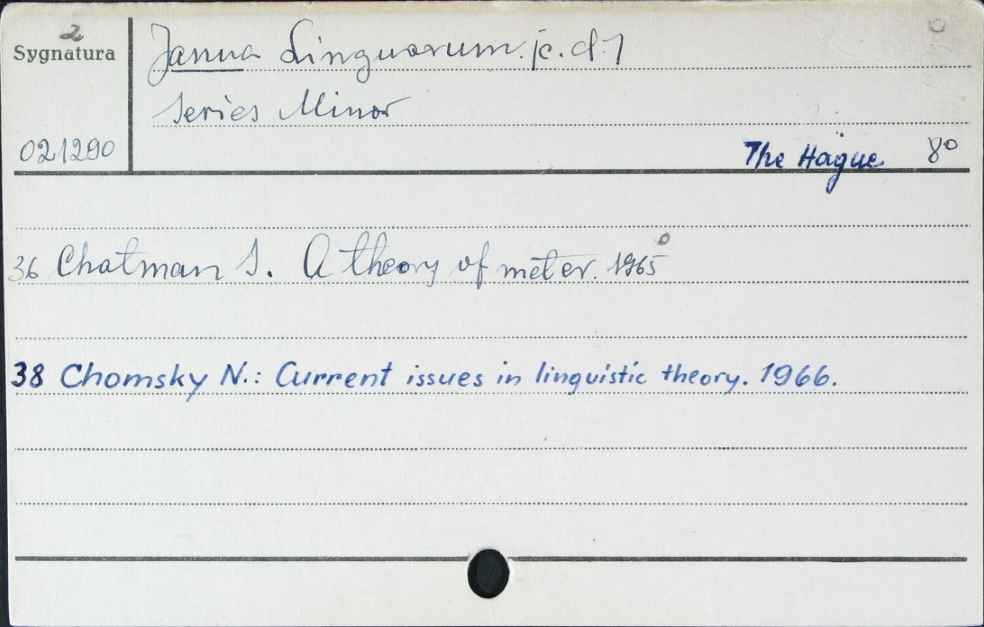 2
Sygnatura
Janua Linguarum. /c.d./
Series Minor
021290
The Hague 8°
36 Chatman S. A theory of meter. 1965
38 Chomsky N.: Current issues in linguistic theory. 1966.